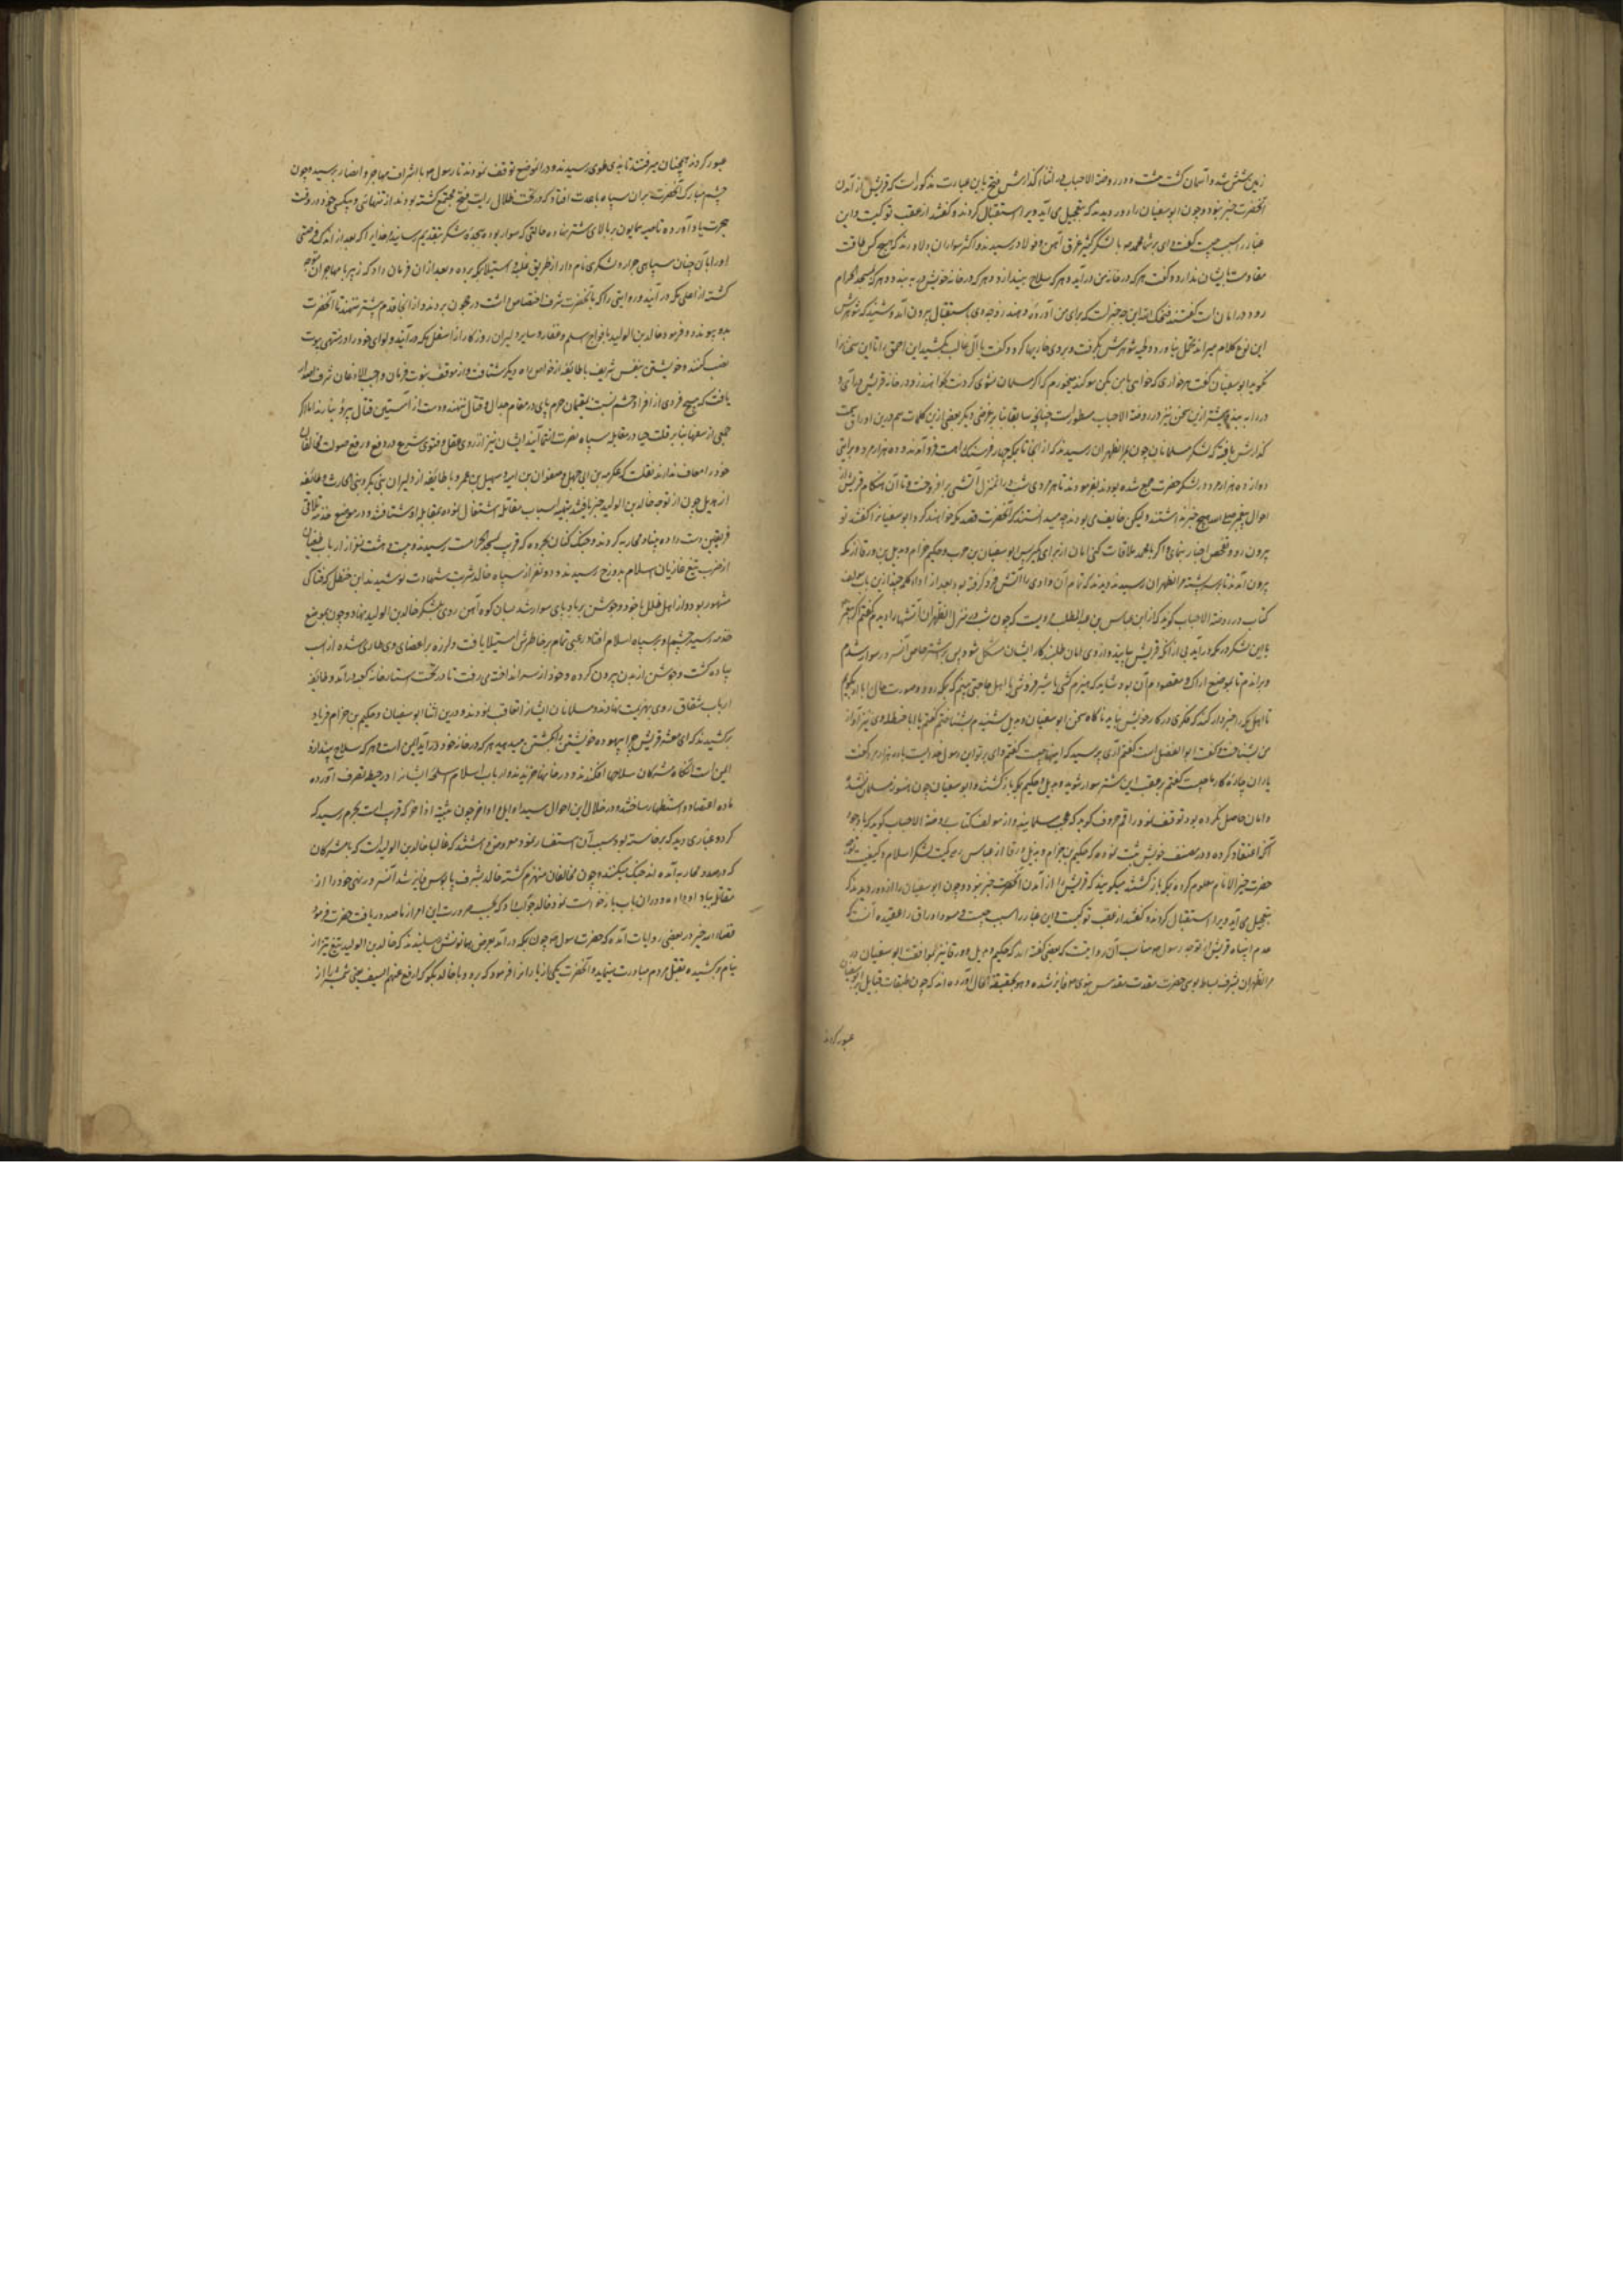 زمین شش شد و آسمان کشت هشت و در روضة الاحباب در اثناء کذارش فتح باین عبارت مذکور است که قریش از آمدن
آنحضرت خبر نبود و چون ابو سفیان را از دور دیدند که بتعجیل می آید ویرا استقبال کردند و کفتند از عقب تو کیست و این
غبار را سبب چیست کفت وای بر شما محمد با لشکر کثیر غرق آهن و فولاد رسیدند و اکثر سواران دلاورند که هیچ کس طاقت
مقاومت ایشان ندارد و کفت هرکه در خانه من درآید و هرکه سلاح بیندازد و هرکه در خانه خویش در به بندد و هرکه بمسجد الحرام
رود در امان است کفتند قبحک الله این چه خبر است که برای ما آورده و هند زوجه وی باستقبال بیرون آمد و شنید که شوهرش
این نوع کلام میراند تحمل نیاورد و ریش شوهرش بگرفت و کفت یا آل غالب بکشید این احمق را تا این سخنان را
نکوید ابو سفیان کفت هر خواری که خواهی با من بکن سوکند میخورم که اکر مسلمان نشوی کردنت بخواهند زد در خانه خویش درآی و
در را به بند و پیشتر ازین سخن نیز در روضة الاحباب مسطور است چنانچه سابقا بنا بر غرضی دیکر بعضی ازین کلمات هم درین اوراق سمت
کذارش یافته که لشکر مسلمانان چون بمر الظهران رسیدند که از آنجا تا مکه چهار فرسنک است فرود آمدند و ده هزار مرد و بروایتی
دوازده هزار مرد در لشکر حضرت جمع شده بودند بفرمودند تا هر مردی شب در آن منزل آتشی بر افروخت و تا آن هنکام قریش از
احوال پیغمبر صلی الله هیچ خبر نداشتند ولیکن خایف می بودند چه میدانستند که آنحضرت قصد مکه خواهند کرد ابو سفیان را کفتند تو
بیرون رو و تفحص اخبار بنمای و اکر با محمد ملاقات کنی امان از برای ما بکیر پس ابو سفیان بن حرب و حکیم بن حزام و بدیل بن ورقا از مکه
بیرون آمدند تا بسر پشته مر الظهران رسیدند دیدند که تمام آن وادی را آتش فرو کرفته بود بعد از ادای کلمه چند ازین باب مولف
کتاب در روضة الاحباب کوید که از ابن عباس بن عبد المطلب مرویست که چون شب در منزل مر الظهران آتشها را دیدم کفتم اکر پیغمبر
با این لشکر در مکه درآید پیش از آنکه قریش بیایند و از وی امان طلبند کار ایشان مشکل شود پس بر شتر خاص آن سرور سوار شدم
و براندم تا بموضع اراک و مقصودم آن بود که شاید که هیزم کشی یا شیر فروشی یا اهل حاجتی بینم که بمکه رود و صورت حال با او بکویم
تا اهل مکه را خبردار کند که فکری در کار خویش نمایند ناکاه سخن ابو سفیان و بدیل شنیدم بشناختم کفتم یا ابا حنظله وی نیز آواز
من بشناخت و کفت ابو الفضل است کفتم آری پرسید که اینجا چیست کفتم وای بر تو این رسول خداست با ده هزار مرد کفت
یاران چاره کار ما چیست کفتم بر عقب این شتر سوار شو بدیل و حکیم بمکه بازکشتند و ابو سفیان چون هنوز مسلمان نشده
و امان حاصل نکرده بود توقف نمود راقم حروف کوید که عجب میدانند از مولف کتاب روضة الاحباب کوید که با وجود
آنکه اعتقاد کرده و در مصنف خویش ثبت نموده که حکیم بن حزام و بدیل بن ورقا از عباس رض کمیت لشکر اسلام و کیفیت توجه
حضرت خیر الانام معلوم کرده بمکه بازکشتند میکویند که قریش را از آمدن آنحضرت خبر نبود و چون ابو سفیان را از دور دیدند که
بتعجیل می آید ویرا استقبال کردند و کفتند از عقب تو کیست و این غبار را سبب چیست مسود اوراق را عقیده آنست که
عدم انتباه قریش از توجه رسول مناسب آن روایتست که بعضی کفته اند که حکیم و بدیل بن ورقا نیز بموافقت ابو سفیان در
مر الظهران بشرف بساط بوسی حضرت مقدس نبوی فایز شده و هو بحقیقة الحال آورده اند که چون طبقات قبایل بر ابو سفیان
عبور کردند
عبور کردند همچنان میرفتند تا بذی طوی رسیدند و در آنموضع توقف نمودند تا رسول با اشراف مهاجر و انصار برسید و چون
چشم مبارک آنحضرت بر آن سپاه با عدت افتاد که در تحت ظلال رایت فتح مجتمع کشته بودند از تنهائی و بیکسی خود در وقت
هجرت یاد آورده ناصیه همایون بر بالای شتر نهاده در حالتی که سوار بود سجده شکر بتقدیم رسانید خدایرا که بعد از اندک فرصتی
او را با آن چنان سپاهی جرار و لشکری نامدار از طریق غلبه و استیلا بمکه برده و بعد از آن فرمان داد که زبیر با مهاجران متوجه
کشته از اعلی مکه درآیند و رایتی را که بآنحضرت شرف اختصاص داشت در حجون بردند و از آنجا قدم پیشتر ننهند تا آنحضرت
بدو پیوندد و فرمود خالد بن الولید با افواج سلیم و غفار و سایر دلیران روزکار از اسفل مکه درآیند و لوای خود را در منتهی بیوت
نصب کنند و خویشتن بنفس شریف با طائفه از خواص راه دیکر شتافت و از موقف نبوت فرمان واجب الاذعان شرف اصدار
یافت که هیچ فردی از افراد حشم نسبت بمقیمان حرم پای در مقام جدال و قتال ننهند و دست از آستین قتال بیرون نیارند اما اکر
جمعی از سفها بنا بر قلت حیا در مقابله سپاه نصرت انتما آیند ایشان نیز از روی عقل و فتوی شرع در دفع و رفع صولت مخالفان
خود را معاف ندارند نقلست که عکرمه بن ابی جهل و صفوان بن امیه و سهیل بن عمرو با طائفه از دلیران بنی بکر و بنی الحارث و طائفه
از هذیل چون از توجه خالد بن الولید خبر یافتند بتهیه اسباب مقاتله اشتغال نموده بمقابله او شتافتند و در موضع خندمه تلاقی
فریقین دست داده بنیاد محاربه کردند و جنک کنان بحزوره که قرب بمسجد الحرامست رسیدند و بیست و هشت نفر از ارباب طغیان
از ضرب تیغ غازیان اسلام بدوزخ رسیدند و دو نفر از سپاه خالد شربت شهادت نوشیدند ابن خنطل که فتاکی
مشهور بود و از اهل ضلال با خود و جوشن بر باد پای سوار شد بسان کوه آهن روی بلشکر خالد بن الولید نهاد و چون بموضع
خندمه رسید چشم او بر سپاه اسلام افتاد رعبی تمام بر خاطرش استیلا یافت و لرزه بر اعضای وی طاری شده از اسب
پیاده کشت و جوشن از بدن بیرون کرده و خود از سر انداخته می رفت تا در تحت استار خانه کعبه درآمد و طائفه
ارباب شقاق روی بهزیمت نهادند و مسلمانان ایشان را تعاقب نمودند و درین اثنا ابو سفیان و حکیم بن حزام فریاد
برکشیدند که ای معشر قریش چرا بیهوده خویشتن را بکشتن میدهید هرکه در خانه خود درآید ایمن است و هرکه سلاح بیندازد
ایمن است آنکاه مشرکان سلاحها افکندند و در خانها خزیدند و ارباب اسلام اسلحه ایشان را در حیطه تصرف آورده
ماده اعتضاد و استظهار ساختند و در خلال این احوال سید اوایل و اواخر چون بثنیه اذاخر که قریب است بحرم رسید که
کرد و غباری دید که برخاسته بود سبب آن استفسار نمود معروض داشتند که غالبا خالد بن الولید است که با مشرکان
که در صدد محاربه آمده اند جنک میکند و چون مخالفان منهزم کشته خالد بشرف پابوس فایز شد آن سرور نهی خود را از
مقاتله بیاد او داده و در آن باب باز خواست نمود خالد جواب داد که بحسب ضرورت این امر از ما صدور یافت حضرت فرمود
قضاء الله خیر در بعضی روایات آمده که حضرت رسول چون بمکه درآمد بعرض همایونش رسانیدند که خالد بن الولید تیغ تیز از
نیام برکشیده بقتل مردم مبادرت مینماید و آنحضرت یکی از یاران را فرمود که برو و با خالد بکو که ارفع عنهم السیف یعنی شمشیر را از